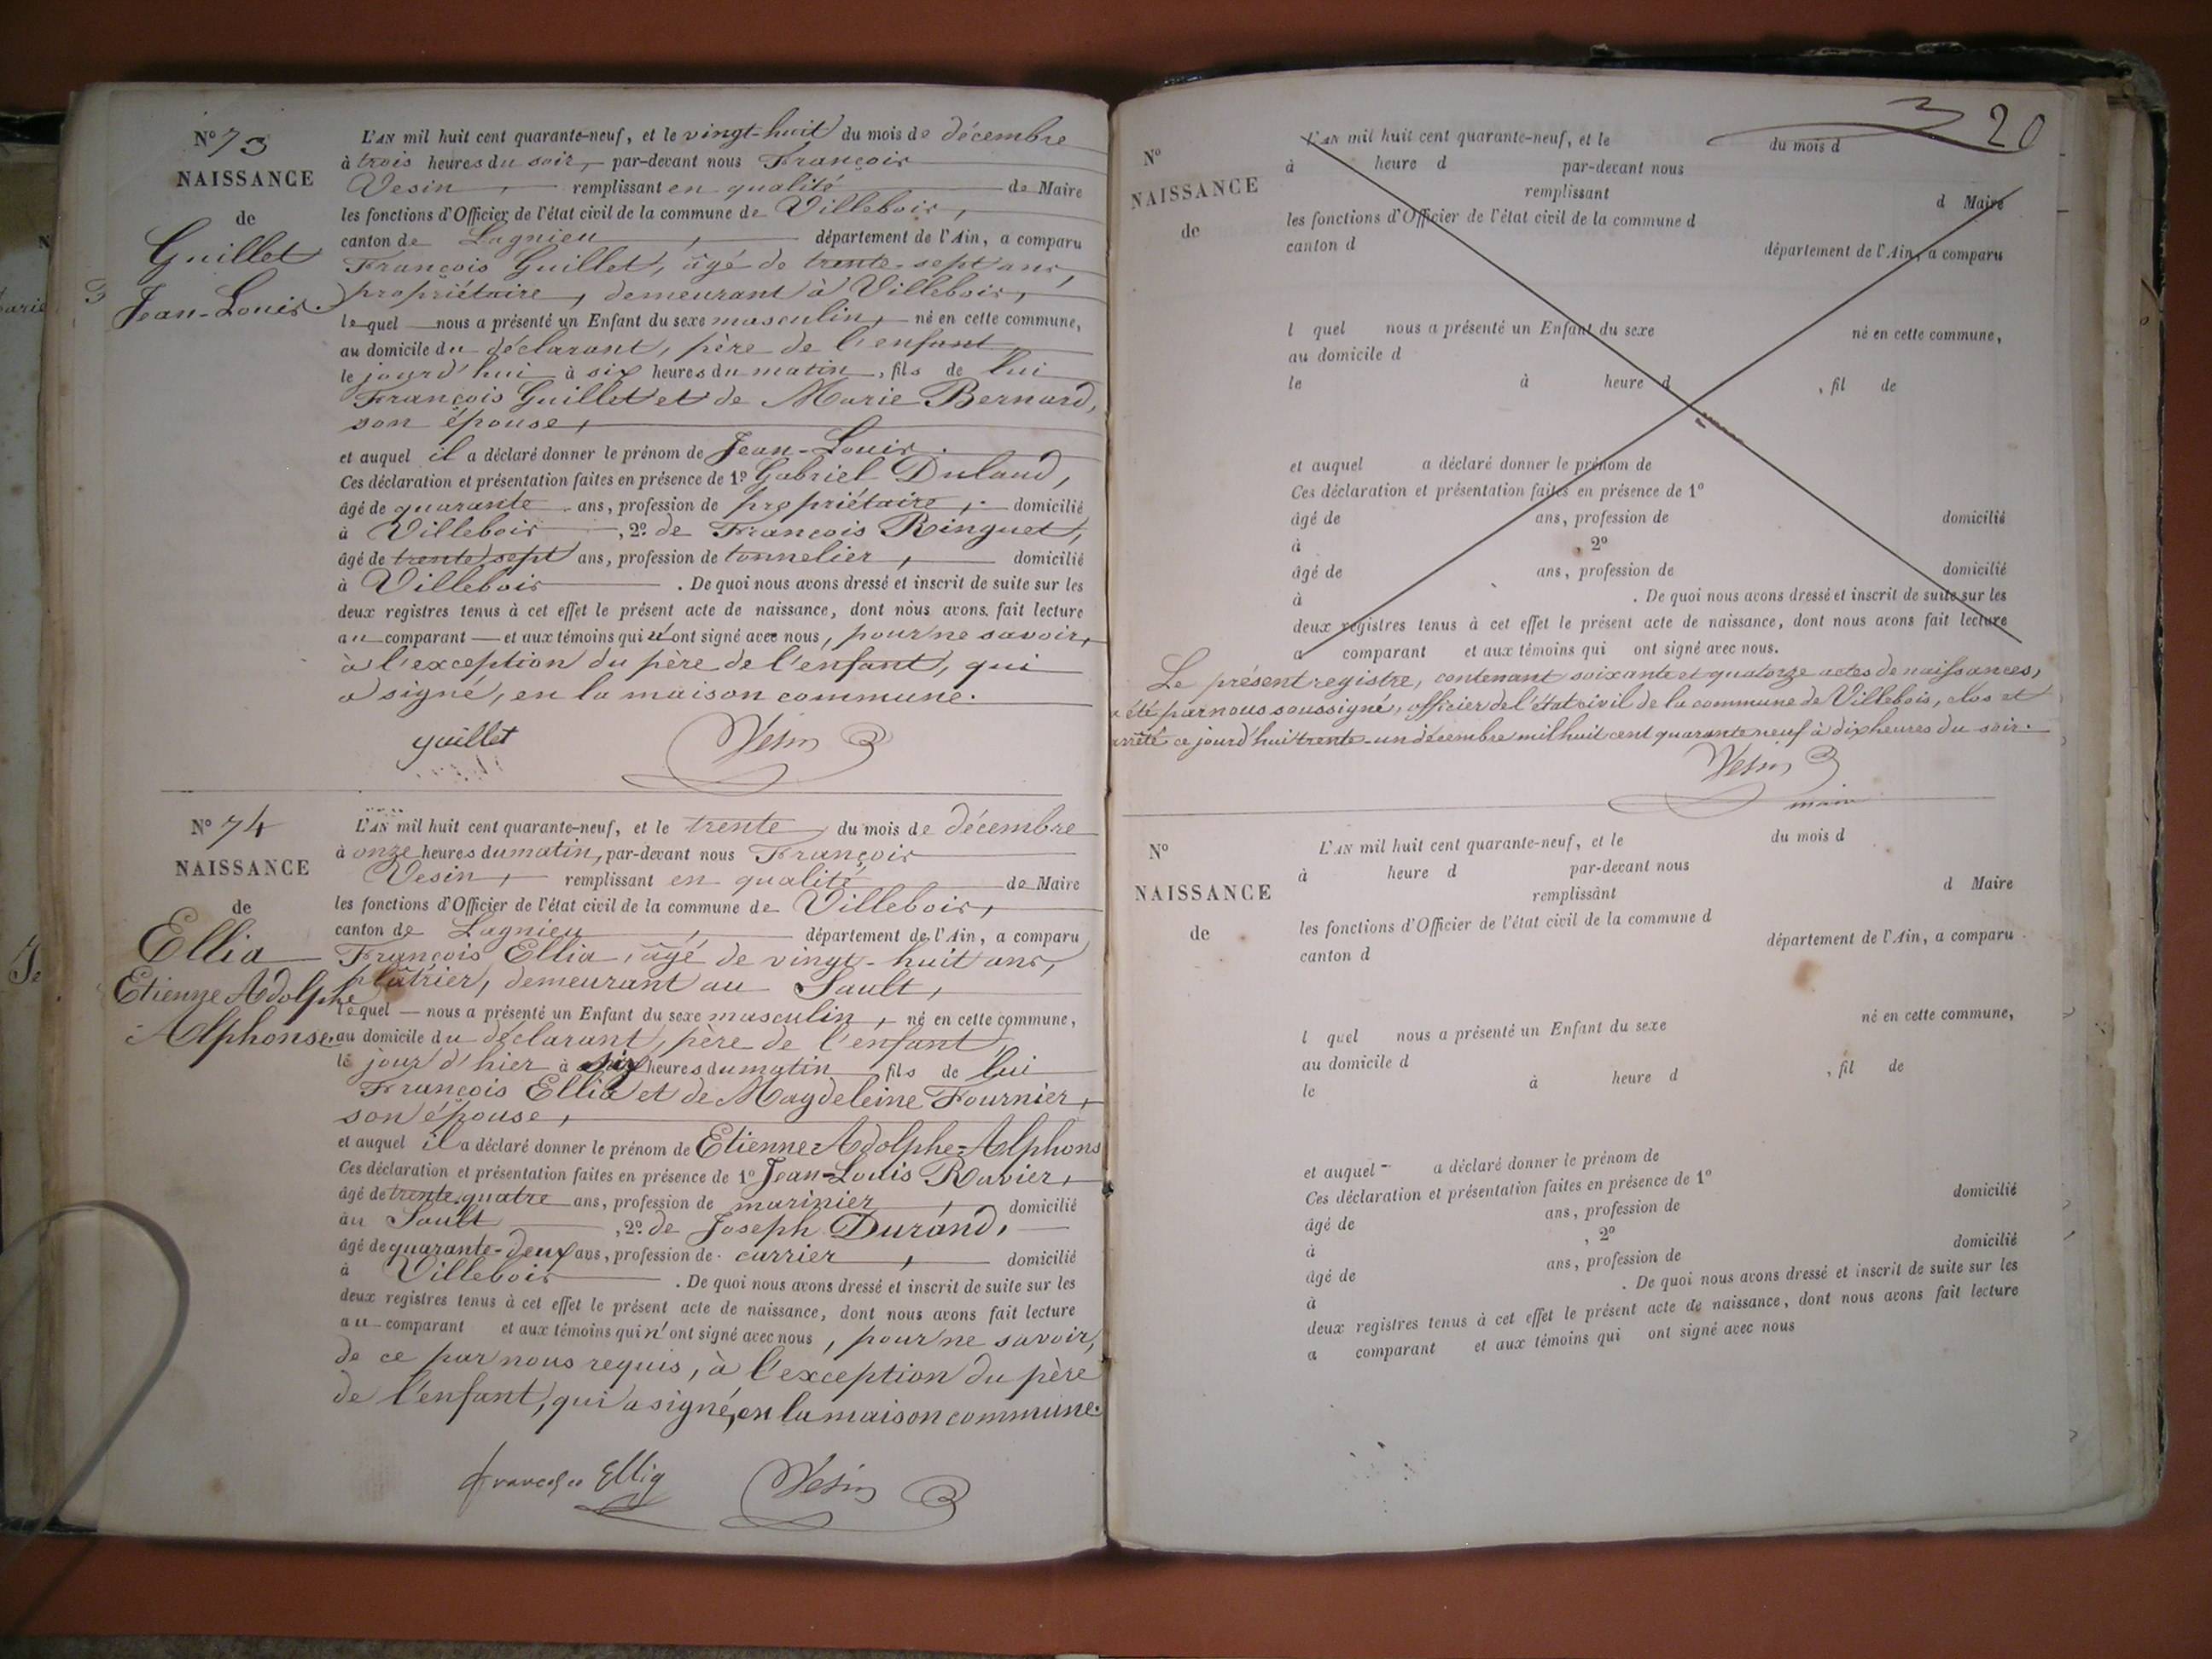 N° 73
NAISSANCE
de
Guillet
Jean-Louis.
L'AN mil huit cent quarante-neuf, et le vingt-huit du mois de décembre
à trois heures du soir, par-devant nous François
Vesin, remplissant en qualité de Maire
les fonctions d'Officier de l'état civil de la commune de Villebois,
canton de Lagnieu, département de l'Ain, a comparu
François Guillet, âgé de trente-sept ans,
propriétaire, demeurant à Villebois,
lequel nous a présenté un Enfant du sexe masculin, né en cette commune,
au domicile du déclarant, père de l'enfant
le jourd'hui à six heures du matin, fils de lui
François Guillet et de Marie Bernard,
son épouse,
et auquel il a déclaré donner le prénom de Jean-Louis.
Ces déclaration et présentation faites en présence de 1° Gabriel Dulaud,
âgé de quarante ans, profession de propriétaire, domicilié
à Villebois, 2° de François Ringuet,
âgé de trente sept ans, profession de tonnelier, domicilié
à Villebois. De quoi nous avons dressé et inscrit de suite sur les
deux registres tenus à cet effet le présent acte de naissance, dont nous avons fait lecture
au comparant et aux témoins qui n'ont signé avec nous, pour ne savoir,
à l'exception du père de l'enfant, qui
a signé, en la maison commune.
guillet Vesin
N° 74
NAISSANCE
de
Ellia
Etienne Adolphe
Alphonse.
L'AN mil huit cent quarante-neuf, et le trente du mois de décembre
à onze heures du matin, par-devant nous François
Vesin, remplissant en qualité de Maire
les fonctions d'Officier de l'état civil de la commune de Villebois,
canton de Lagnieu, département de l'Ain, a comparu
François Ellia, âgé de vingt-huit ans,
plâtrier, demeurant au Sault,
lequel nous a présenté un Enfant du sexe masculin, né en cette commune,
au domicile du déclarant, père de l'enfant,
le jour d'hier à six heures du matin fils de lui
François Ellia et de Magdeleine Fournier,
son épouse,
et auquel il a déclaré donner le prénom de Etienne-Adolphe-Alphons
Ces déclaration et présentation faites en présence de 1° Jean-Louis Ravier,
âgé de trente quatre ans, profession de marinier, domicilié
au Sault, 2° de Joseph Durand,
âgé de quarante-deux ans, profession de carrier, domicilié
à Villebois. De quoi nous avons dressé et inscrit de suite sur les
deux registres tenus à cet effet le présent acte de naissance, dont nous avons fait lecture
au comparant et aux témoins qui n'ont signé avec nous, pour ne savoir,
de ce par nous requis, à l'exception du père
de l'enfant, qui a signé, en la maison commune.
Ellia Vesin
20
N°
NAISSANCE
de
L'AN mil huit cent quarante-neuf, et le du mois d
à heure d par-devant nous
remplissant d Maire
les fonctions d'Officier de l'état civil de la commune d
canton d département de l'Ain, a comparu
l quel nous a présenté un Enfant du sexe né en cette commune,
au domicile d
le à heure d , fil de
et auquel a déclaré donner le prénom de
Ces déclaration et présentation faites en présence de 1°
âgé de ans, profession de domicilié
à , 2°
âgé de ans, profession de domicilié
à . De quoi nous avons dressé et inscrit de suite sur les
deux registres tenus à cet effet le présent acte de naissance, dont nous avons fait lecture
a comparant et aux témoins qui ont signé avec nous.
Le présent registre, contenant soixante et quatorze actes de naissances,
a été par nous soussigné, officier de l'état civil de la commune de Villebois, clos et
arrêté ce jourd'hui trente-un décembre mil huit cent quarante neuf à dix heures du soir.
Vesin
maire
N°
NAISSANCE
de
L'AN mil huit cent quarante-neuf, et le du mois d
à heure d par-devant nous
remplissant d Maire
les fonctions d'Officier de l'état civil de la commune d
canton d département de l'Ain, a comparu
l quel nous a présenté un Enfant du sexe né en cette commune,
au domicile d
le à heure d , fil de
et auquel a déclaré donner le prénom de
Ces déclaration et présentation faites en présence de 1°
âgé de ans, profession de domicilié
à , 2°
âgé de ans, profession de domicilié
à . De quoi nous avons dressé et inscrit de suite sur les
deux registres tenus à cet effet le présent acte de naissance, dont nous avons fait lecture
a comparant et aux témoins qui ont signé avec nous